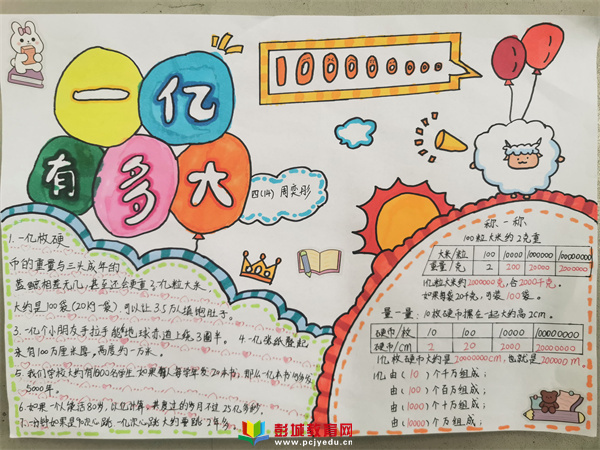 一亿
有多大
100000000
四(14) 周奕彤
1.一亿枚硬
币的重量与三头成年的
蓝鲸相差无几,甚至还会更重
大约是100袋(20kg一袋)可以让3.5万人填饱肚子。
3.一亿个小朋友手拉手能
地球赤道上绕3圈半。
4.一亿张纸叠起
来有100万厘米厚,高度约一万米。
5.我们学校大约有1600名学生
20本书,
5000年。
6.如果一个人能活80岁,
25亿多秒。
7.一分钟如果是90次心跳,一亿次心跳大约要跳2年多。
称一称
100粒大米约2克重
大米/粒 100 10000 1000000 100000000
重量/克 2 200 20000 2000000
1亿粒大米约2000000克,合2000千克。
如果每袋20千克,可装100袋。
量一量:10枚硬币摞在一起大约高2cm。
硬币/枚 10 100 10000 100000000
硬币/cm 2 20 2000 20000000
1亿枚硬币大约是20000000cm,也就是200000m。
1亿由(10)个千万组成;
由(100)个百万组成;
由(1000)个十万组成;
由(10000)个万组成;
彭城教育网
www.pcjyedu.cn